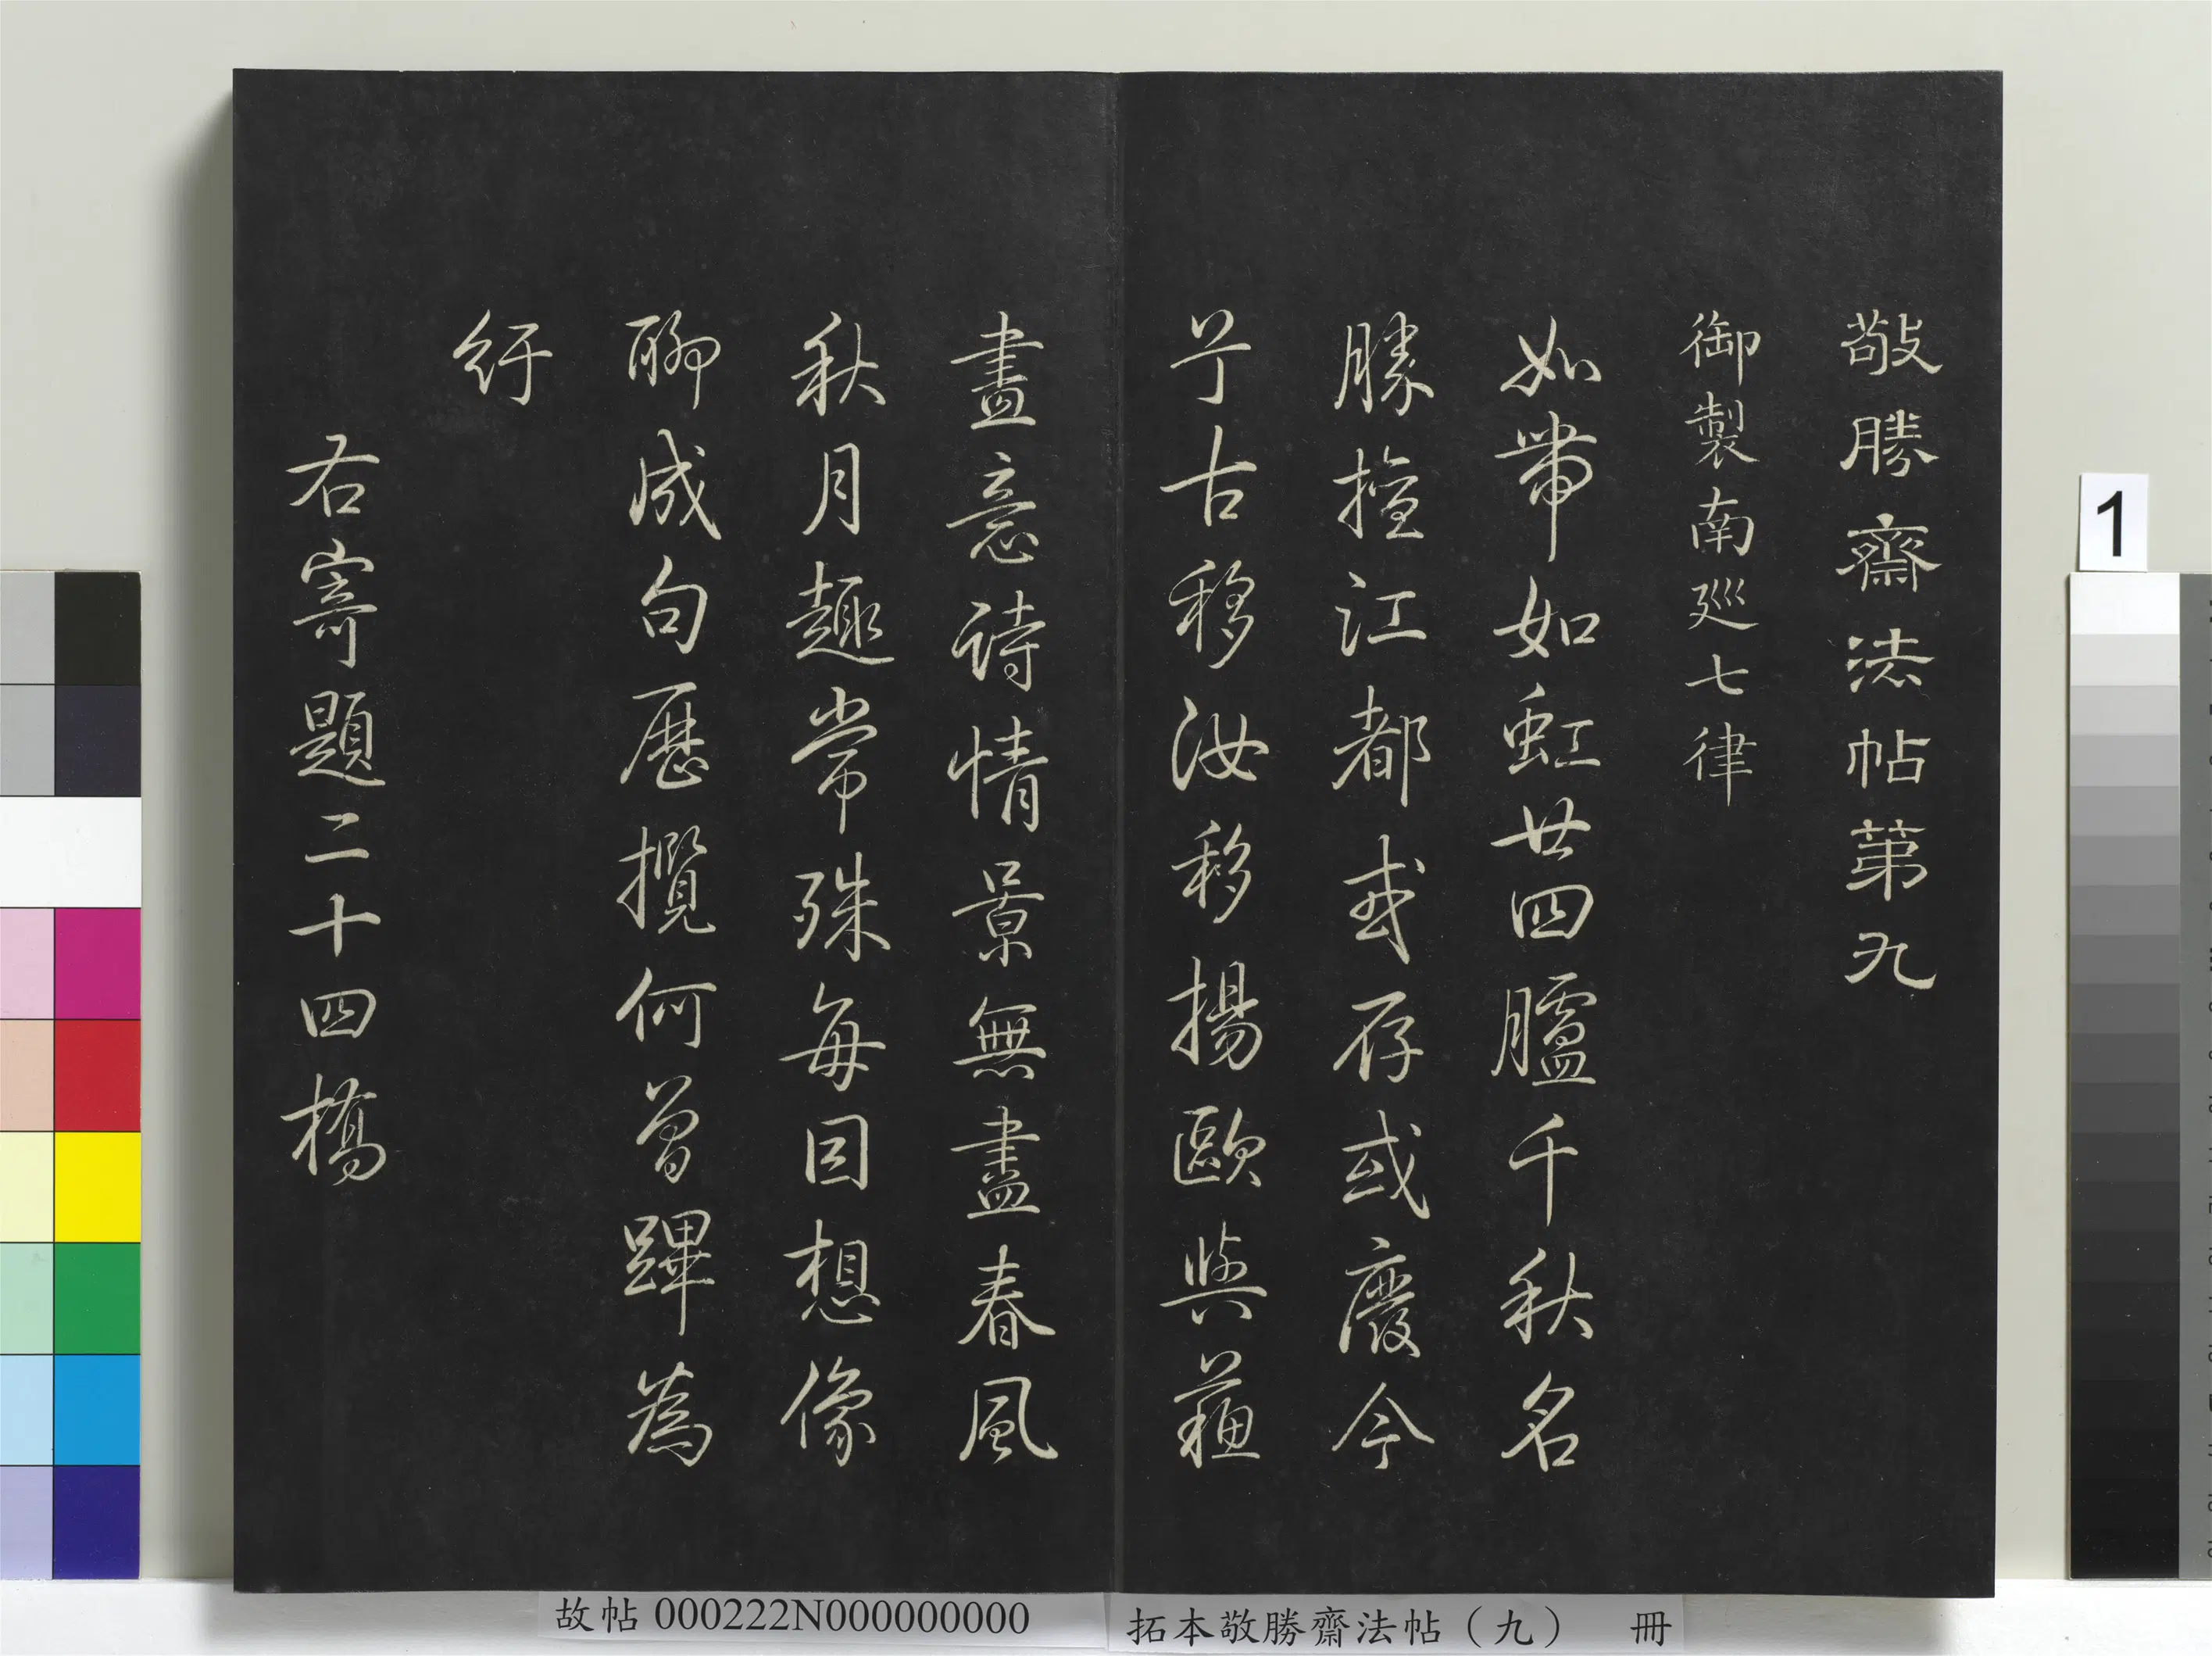 敬勝齋法帖第九
御製南廵七律
如帶如虹廿四臚千秋名
勝擅江都或存或廢今
乎古移汝移揚歐與蘓
畫意詩情景無盡春風
秋月趣常殊每因想像
聊成句歴攬何曾蹕為
紆
右寄題二十四橋
故帖 000222N000000000
拓本敬勝齋法帖（九） 冊
1